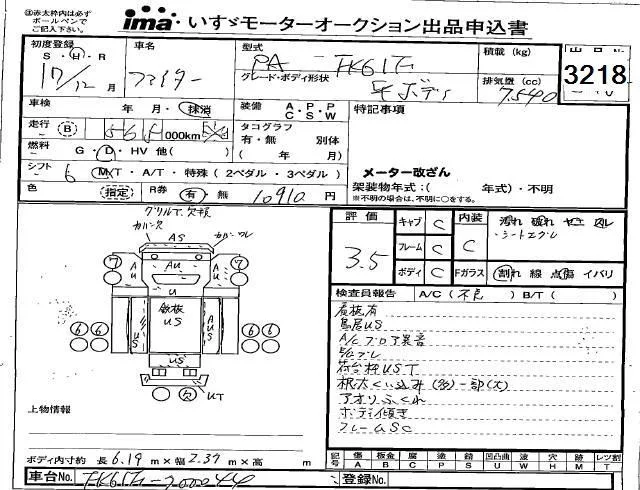 ㊟赤太枠内は必ず
ボールペンで
ご記入下さい
ima いすゞモーターオークション出品申込書
初度登録 車名 型式 積載 (kg) 出品No.
S・H・R PA-FK61F
17/12 月 ファイター グレード・ボディ形状 平ボディ 排気量 (cc) 7540 3218
車検 年・月・抹消 装備 A・P・P C・S・W 特記事項
走行 B 000km タコグラフ
有・無 別体
燃料 G・D・HV 他( ) ( 年 月)
シフト 6 M/T・A/T・特殊(2ペダル・3ペダル) メーター改ざん
色 指定 R券 有・無 10910 円 架装物年式:( 年式)・不明
※不明の場合は、不明に○をする。
グリル下欠損
カバー欠 AS カバーワレ
評価 3.5 キャブ C 内装 C 汚れ 破れ
フレーム C シートスレ
ボディ C Fガラス 割れ 線 点傷 イバリ
7 AU AU AU 7
U
検査員報告 A/C(不良) B/T( )
鉄板
US
US AUS
6 6 6 6
US
欠 UT
屋根有
鳥居US
A/Cブロア異音
荷台枠UST
根太くい込み(多)一部(大)
アオリふくれ
ボディ傾き
フレームSC
上物情報
ボディ内寸約 長6.19m×幅2.37m×高 m
記号 傷 板金 腐 塗 錆 凹凸曲 波 穴 跡 レツ割
A B C P S U W H M T
車台No. FK61F-700044 登録No.